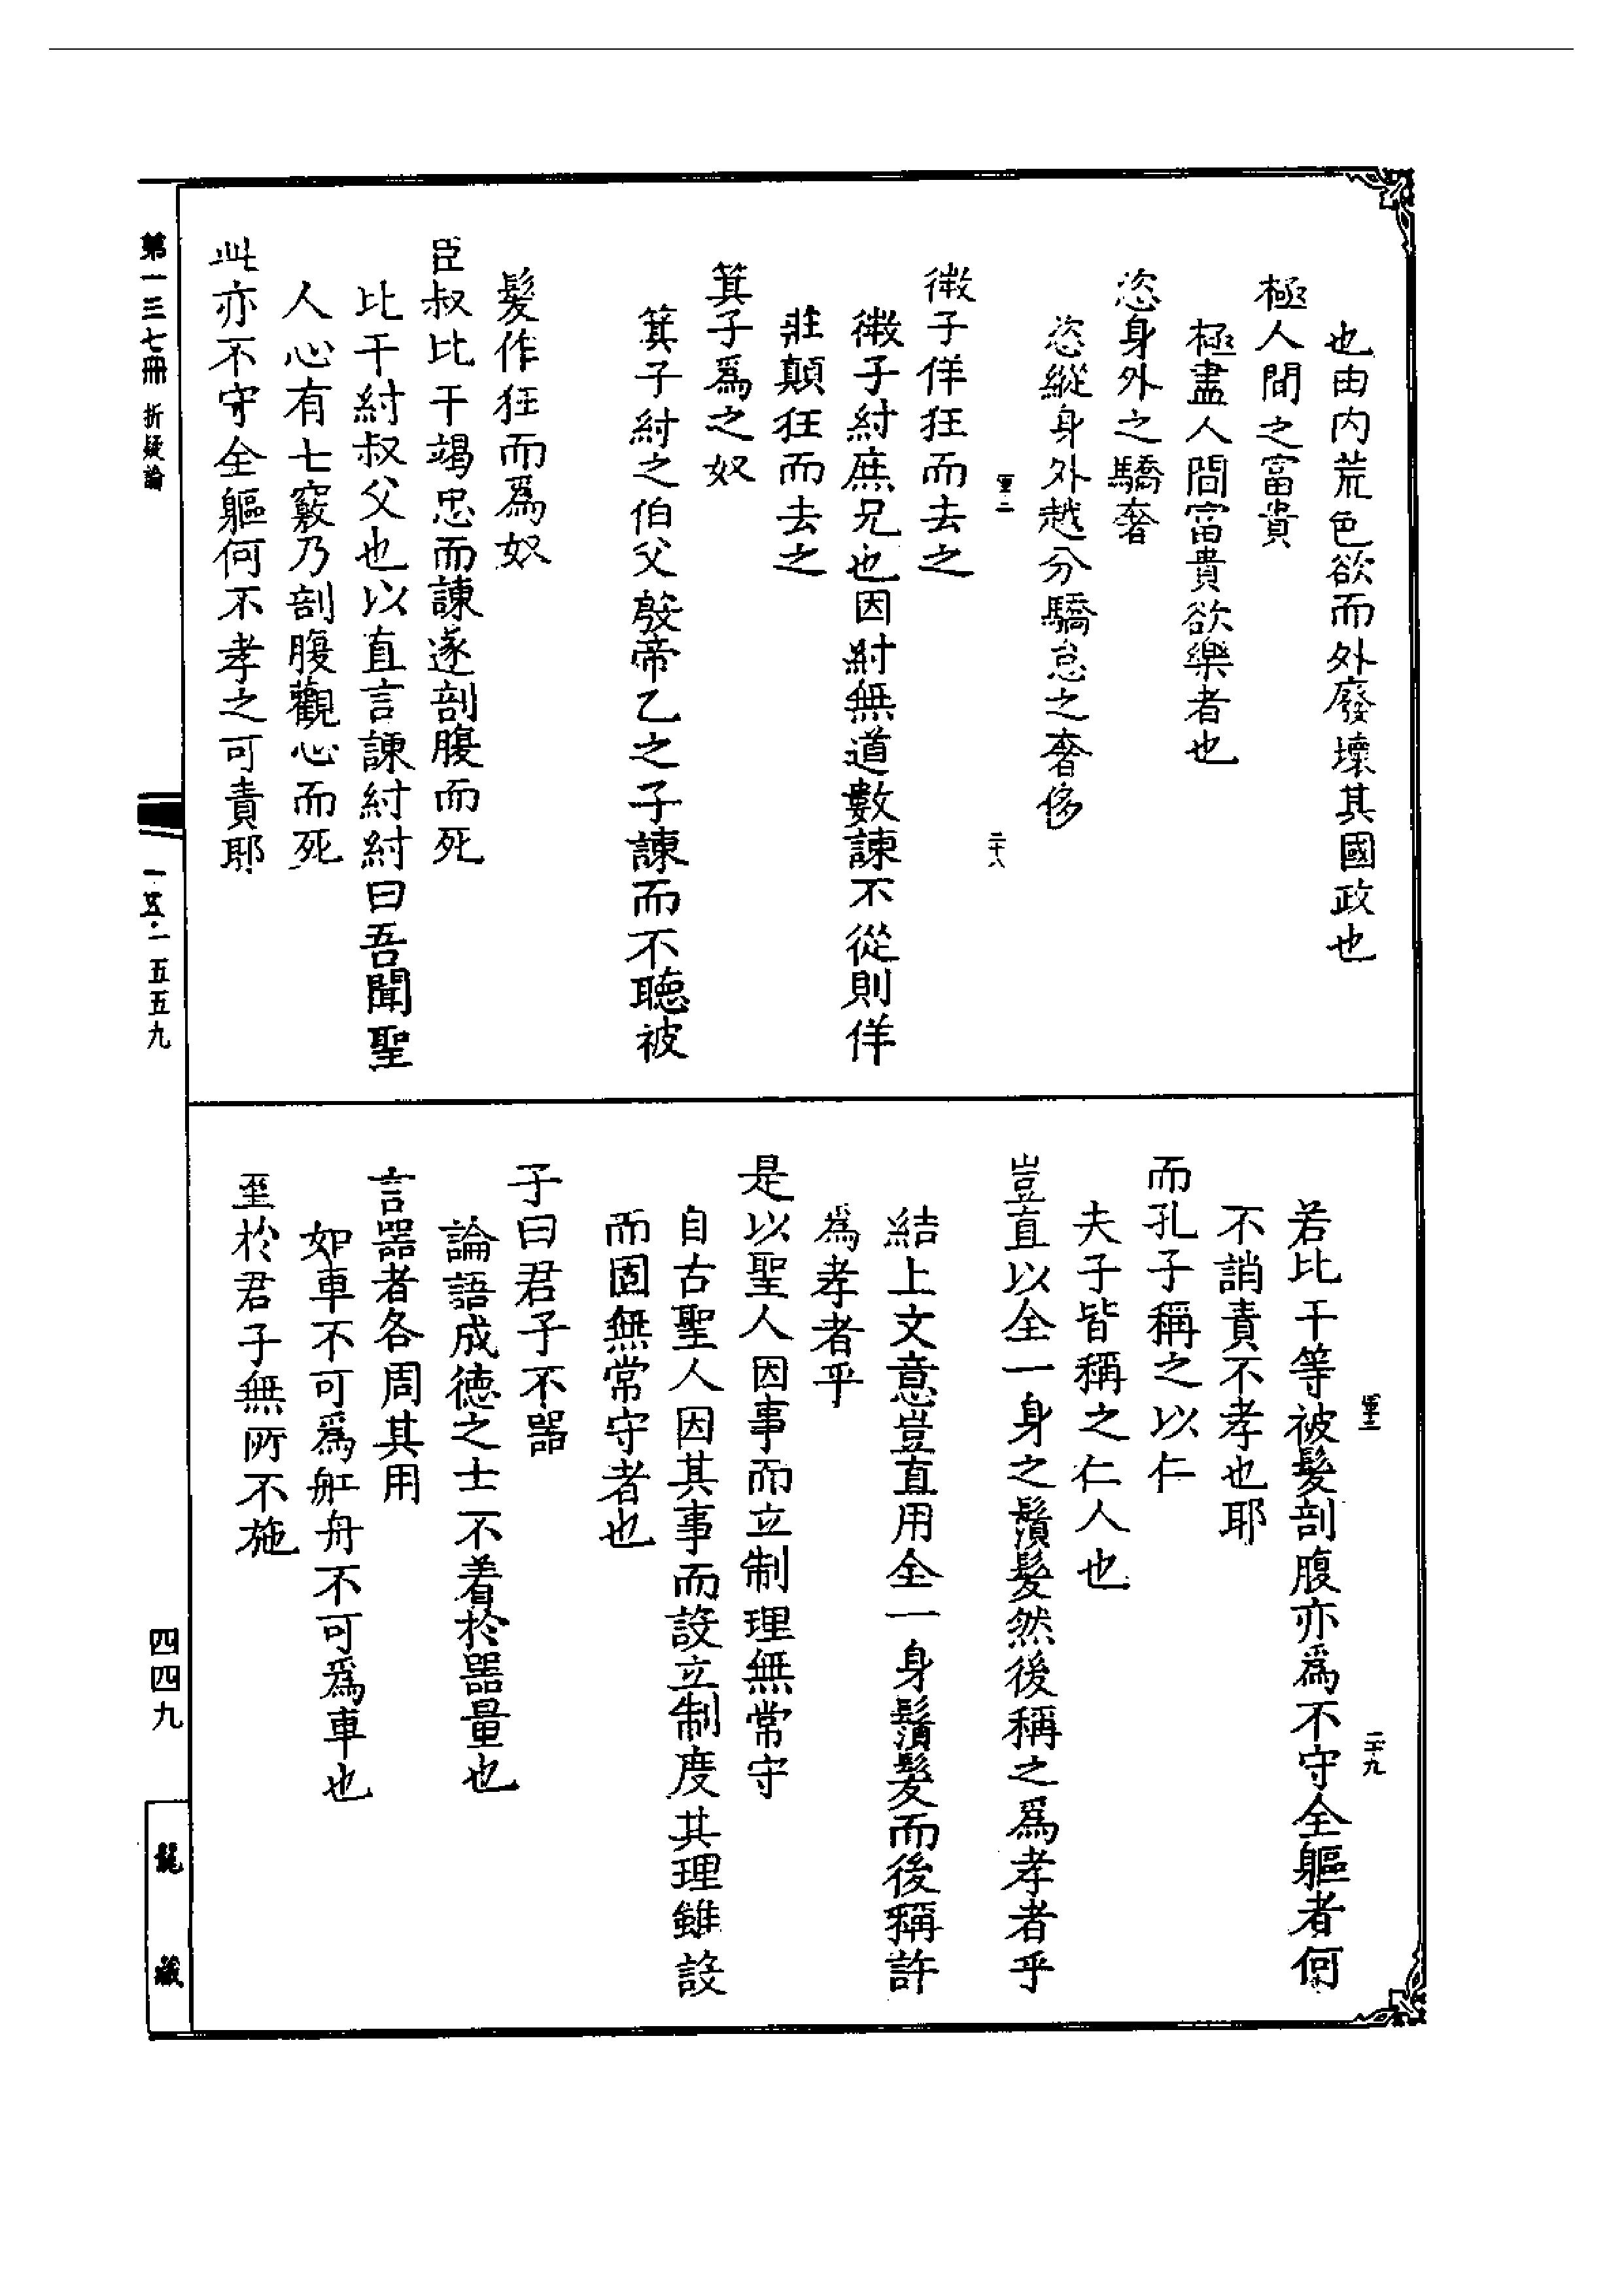 也由内荒色欲而外廢壞其國政也
極人間之富貴
極盡人間富貴欲樂者也
恣身外之驕奢
恣縱身外越分驕怠之奢侈
二十八
微子佯狂而去之
微子紂庶兄也因紂無道數諫不從則佯
莊顛狂而去之
箕子爲之奴
箕子紂之伯父殷帝乙之子諫而不聽被
髮作狂而爲奴
臣叔比干竭忠而諫遂剖腹而死
比干紂叔父也以直言諫紂紂曰吾聞聖
人心有七竅乃剖腹觀心而死
此亦不守全軀何不孝之可責耶
二十九
若比干等被髮剖腹亦爲不守全軀者何
不誚責不孝也耶
而孔子稱之以仁
夫子皆稱之仁人也
豈直以全一身之鬚髮然後稱之爲孝者乎
結上文意豈直用全一身鬚髮而後稱許
爲孝者乎
是以聖人因事而立制理無常守
自古聖人因其事而設立制度其理雖設
而固無常守者也
子曰君子不器
論語成德之士不着於器量也
言器者各周其用
如車不可爲舡舟不可爲車也
至於君子無所不施
第一三七冊 折疑論
一五·一五五九
四四九
龍藏